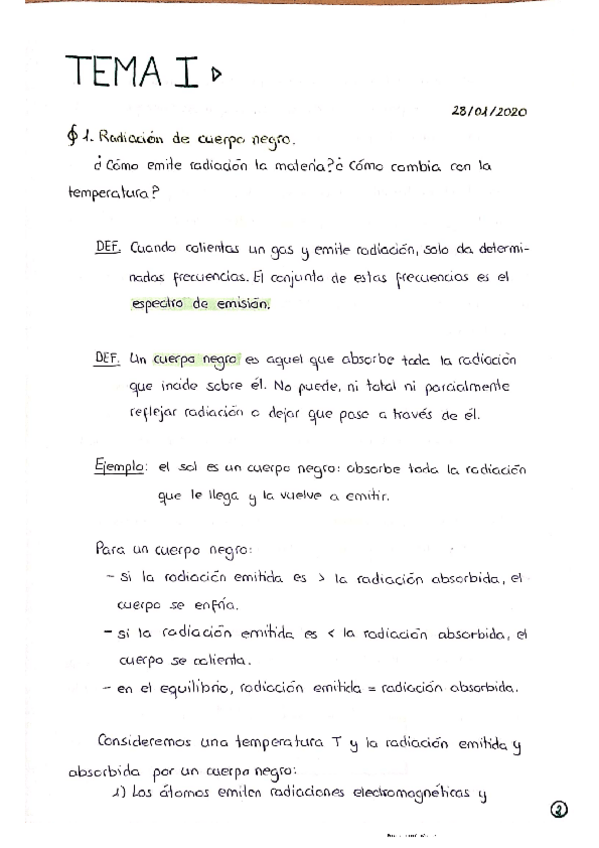 TEMA I ▷
28/01/2020
§ 1. Radiación de cuerpo negro.
¿Cómo emite radiación la materia? ¿Cómo cambia con la
temperatura?
DEF. Cuando calientas un gas y emite radiación, solo da determi-
nadas frecuencias. El conjunto de estas frecuencias es el
espectro de emisión.
DEF. Un cuerpo negro es aquel que absorbe toda la radiación
que incide sobre él. No puede, ni total ni parcialmente
reflejar radiación o dejar que pase a través de él.
Ejemplo: el sol es un cuerpo negro: absorbe toda la radiación
que le llega y la vuelve a emitir.
Para un cuerpo negro:
- si la radiación emitida es > la radiación absorbida, el
cuerpo se enfría.
- si la radiación emitida es < la radiación absorbida, el
cuerpo se calienta.
- en el equilibrio, radiación emitida = radiación absorbida.
Consideremos una temperatura T y la radiación emitida y
absorbida por un cuerpo negro:
1) Los átomos emiten radiaciones electromagnéticas y